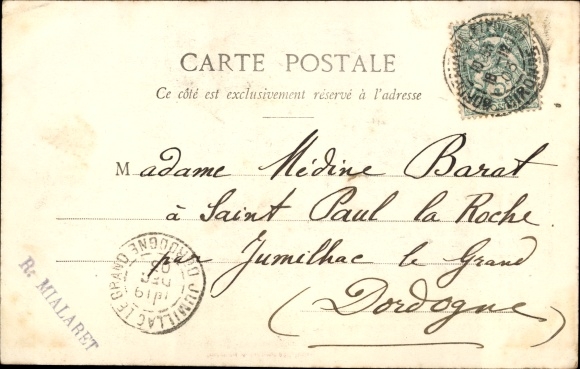 CARTE POSTALE
Ce côté est exclusivement réservé à l'adresse
Madame Médine Barat
à Saint Paul la Roche
par Jumilhac le Grand
(Dordogne)
JUMILLAC LE GRAND DORDOGNE
Rc MIALARET